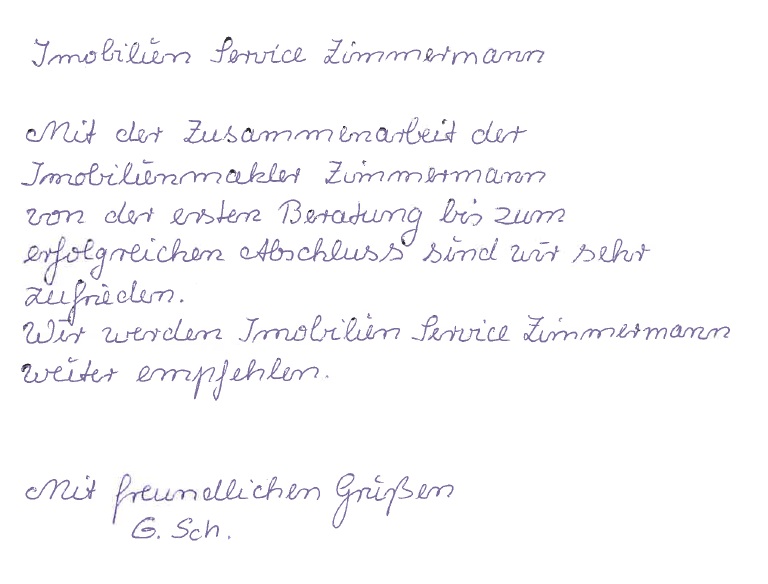 Imobilien Service Zimmermann
Mit der Zusammenarbeit der
Imobilienmakler Zimmermann
von der ersten Beratung bis zum
erfolgreichen Abschluss sind wir sehr
zufrieden.
Wir werden Imobilien Service Zimmermann
weiter empfehlen.
Mit freundlichen Grüßen
G. Sch.